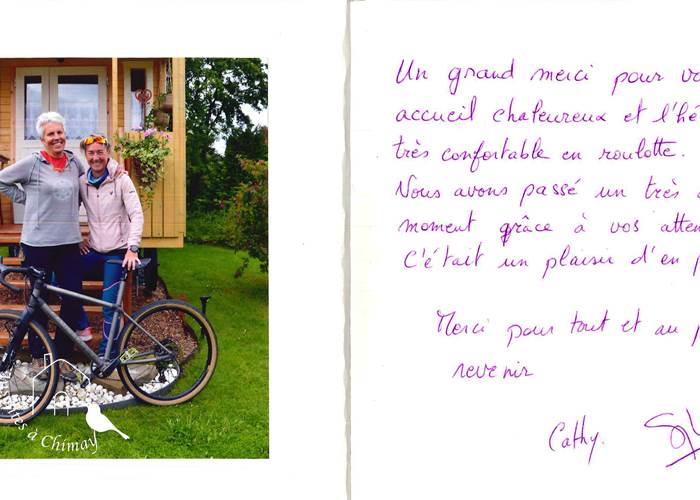 à Chimay
Un grand merci pour
accueil chaleureux et
très confortable en roulotte.
Nous avons passé un très
moment grâce à vos
C'était un plaisir d'en
Merci pour tout et au
revenir
Cathy.